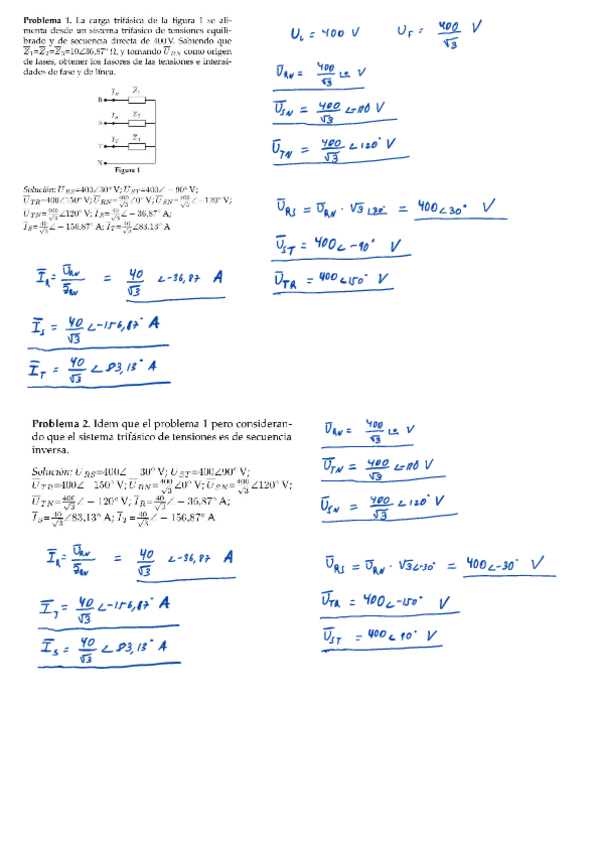 Problema 1. La carga trifásica de la figura 1 se ali-
menta desde un sistema trifásico de tensiones equili-
brado y de secuencia directa de 400 V. Sabiendo que
Z̅1=Z̅2=Z̅3=10∠36,87° Ω, y tomando U̅RN como origen
de fases, obtener los fasores de las tensiones e intensi-
dades de fase y de línea.
R I̅R Z̅1
S I̅S Z̅2
T I̅T Z̅3
N
Figura 1
Solución: U̅RS=400∠30° V; U̅ST=400∠−90° V;
U̅TR=400∠150° V; U̅RN=400/√3∠0° V; U̅SN=400/√3∠−120° V;
U̅TN=400/√3∠120° V; I̅R=40/√3∠−36,87° A;
I̅S=40/√3∠−156,87° A; I̅T=40/√3∠83,13° A
UL = 400 V UF = 400/√3 V
U̅RN = 400/√3 V
U̅SN = 400/√3 V
U̅TN = 400/√3 ∠120° V
U̅RS = U̅RN · √3 ∠30° = 400∠30° V
U̅ST = 400∠-90° V
U̅TR = 400∠150° V
I̅R = U̅RN/Z̅RN = 40/√3 ∠-36,87 A
I̅S = 40/√3 ∠-156,87° A
I̅T = 40/√3 ∠83,13° A
Problema 2. Idem que el problema 1 pero consideran-
do que el sistema trifásico de tensiones es de secuencia
inversa.
Solución: U̅RS=400∠−30° V; U̅ST=400∠90° V;
U̅TR=400∠−150° V; U̅RN=400/√3∠0° V; U̅SN=400/√3∠120° V;
U̅TN=400/√3∠−120° V; I̅R=40/√3∠−36,87° A;
I̅S=40/√3∠83,13° A; I̅T=40/√3∠−156,87° A
U̅RN = 400/√3 V
U̅TN = 400/√3 V
U̅SN = 400/√3 ∠120° V
I̅R = U̅RN/Z̅RN = 40/√3 ∠-36,87 A
I̅T = 40/√3 ∠-156,87° A
I̅S = 40/√3 ∠83,13° A
U̅RS = U̅RN · √3∠-30° = 400∠-30° V
U̅TR = 400∠-150° V
U̅ST = 400∠90° V